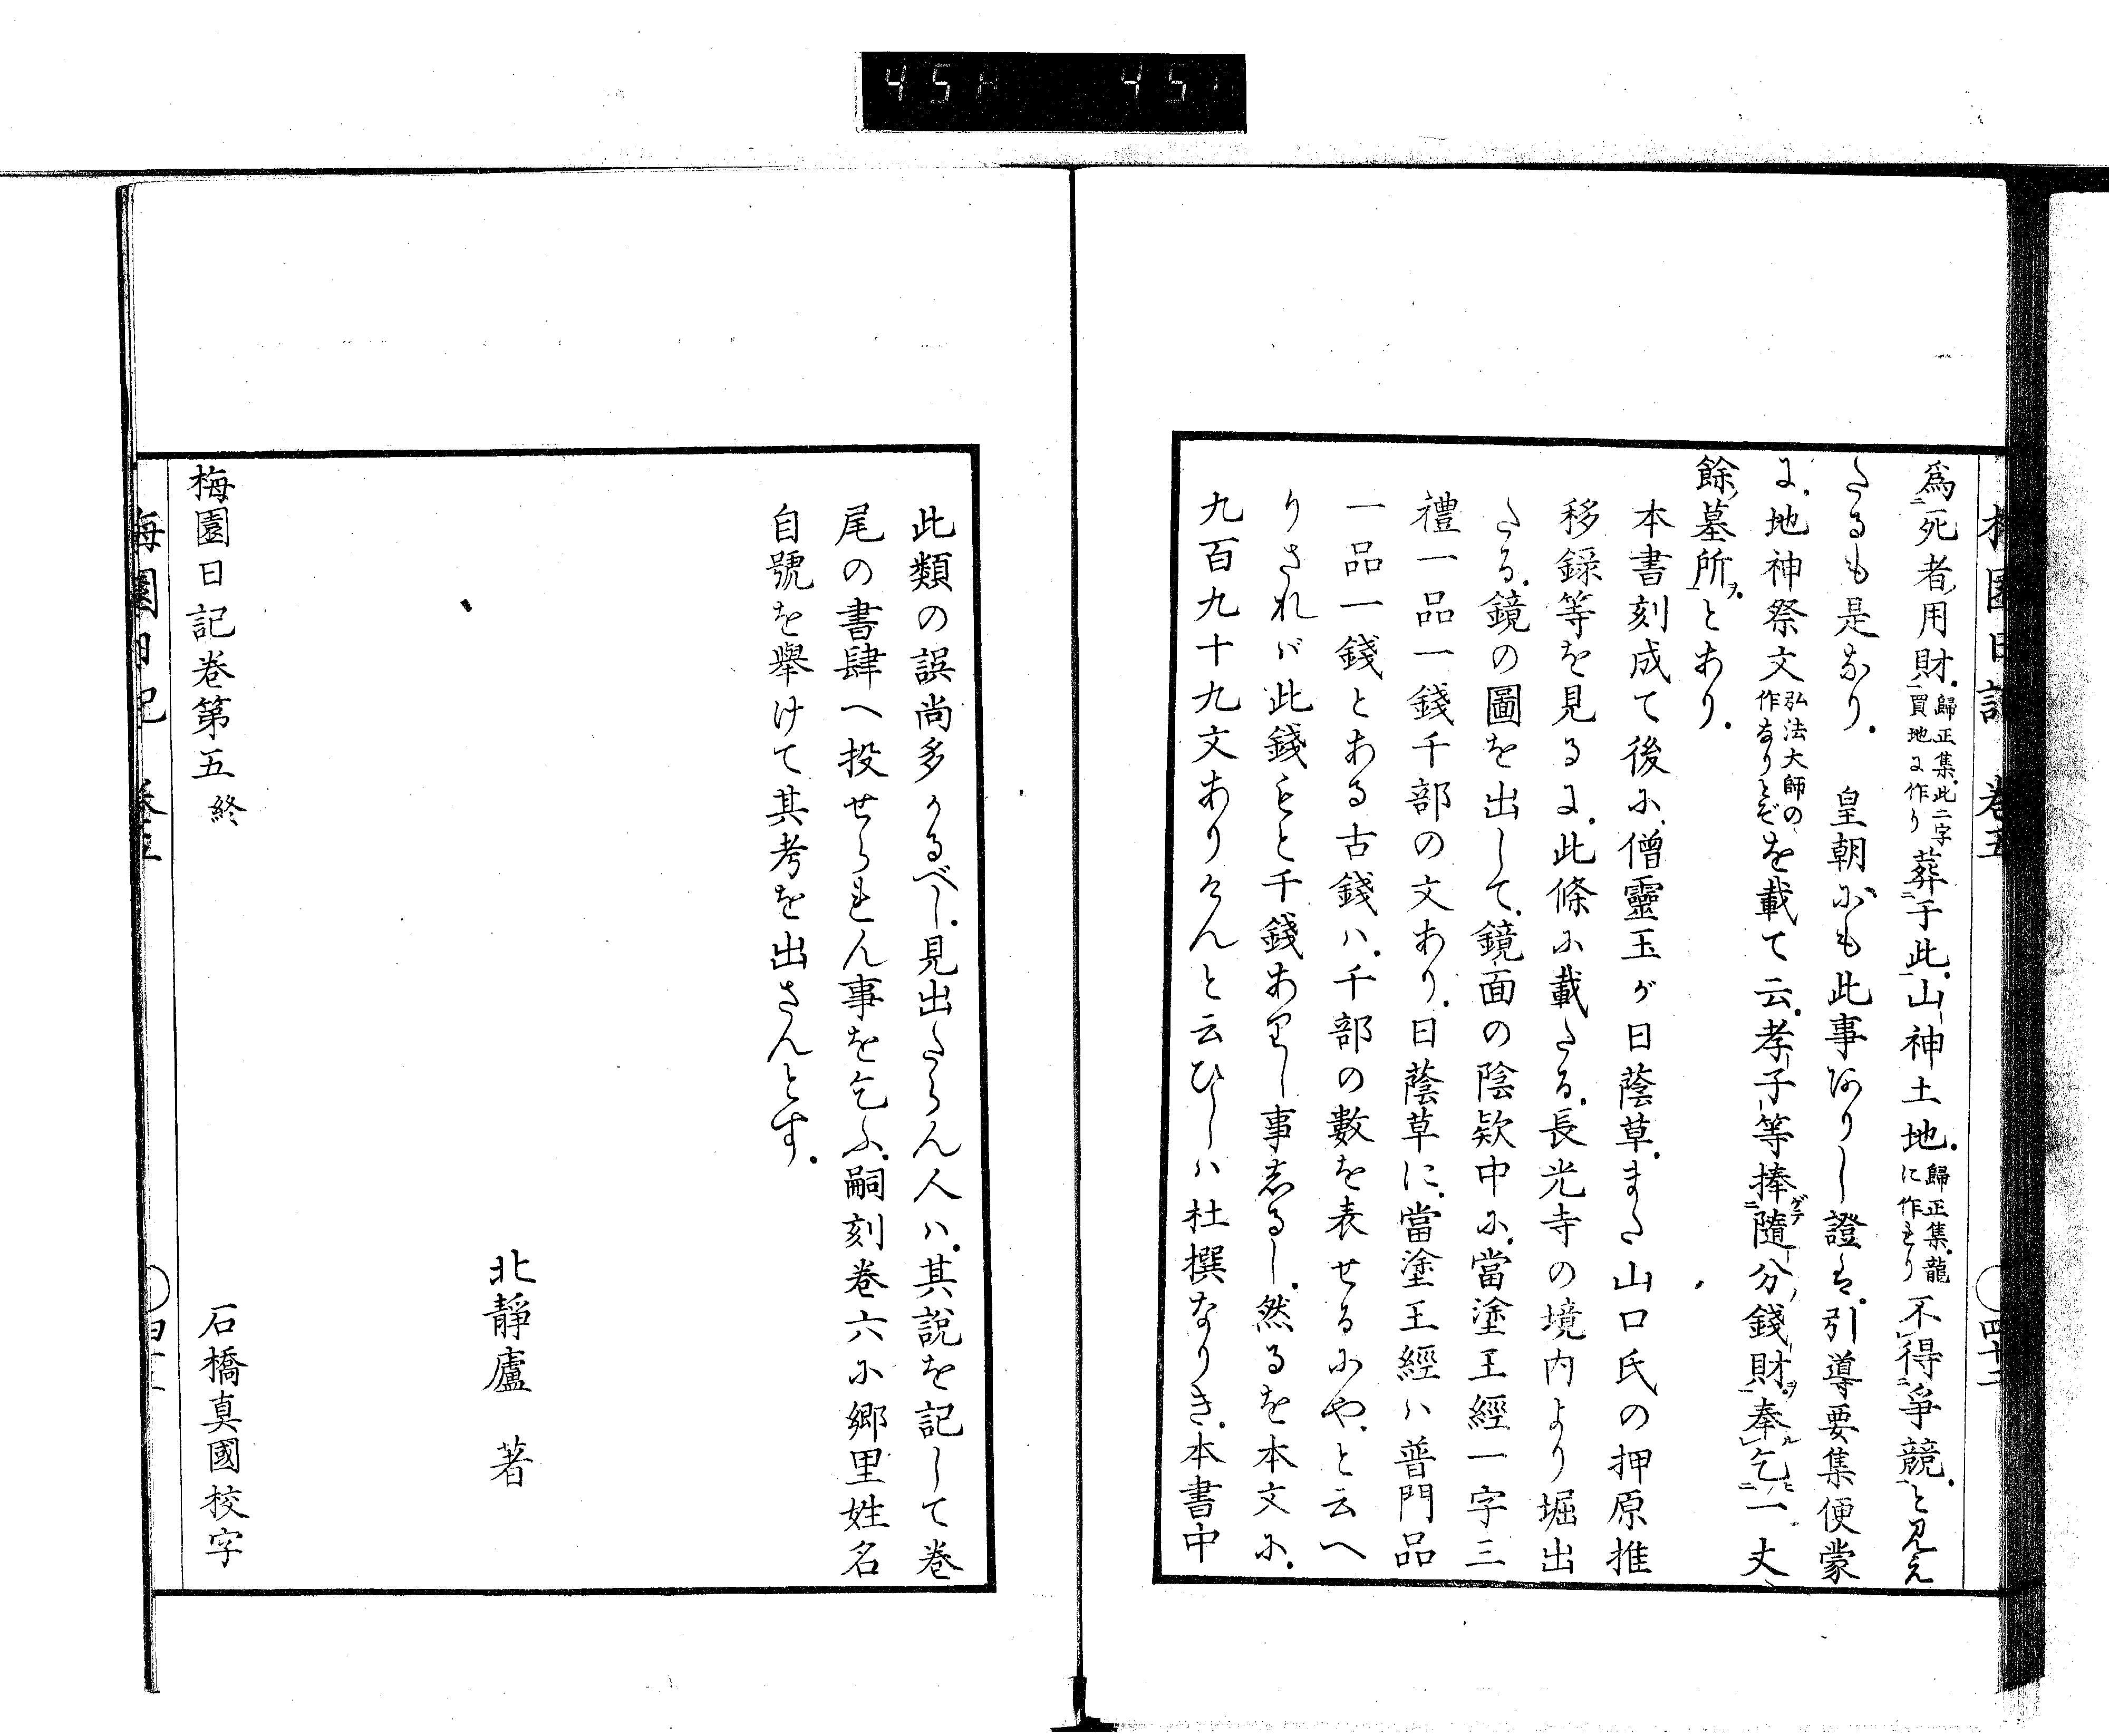 爲死者用財。歸正集。此二字買地に作り葬于此。山神土地。歸正集。龍に作れり不得爭競。と見え
たるも是なり。 皇朝にも此事ありし證は。引導要集便蒙
に。地神祭文弘法大師の作なりとぞを載て云。孝子等捧隨分錢財奉乞一丈
餘墓所とあり。
本書刻成て後に。僧靈玉が日蔭草。また山口氏の押原推
移錄等を見るに。此條に載たる。長光寺の境内より堀出
たる。鏡の圖を出して。鏡面の陰欵中に。當塗王經一字三
禮一品一錢千部の文あり。日蔭草に。當塗王經ハ普門品
一品一錢とある古錢ハ。千部の數を表せるにや。と云へ
りされバ此錢もと千錢ありし事志るし。然るを本文に。
九百九十九文ありけんと云ひしハ杜撰なりき。本書中
此類の誤尚多かるべし。見出たらん人ハ。其說を記して卷
尾の書肆へ投せられん事を乞ふ。嗣刻卷六に鄉里姓名
自號を舉けて其考を出さんとす。
北靜廬 著
梅園日記卷第五 終
石橋真國校字
梅園日記 卷五